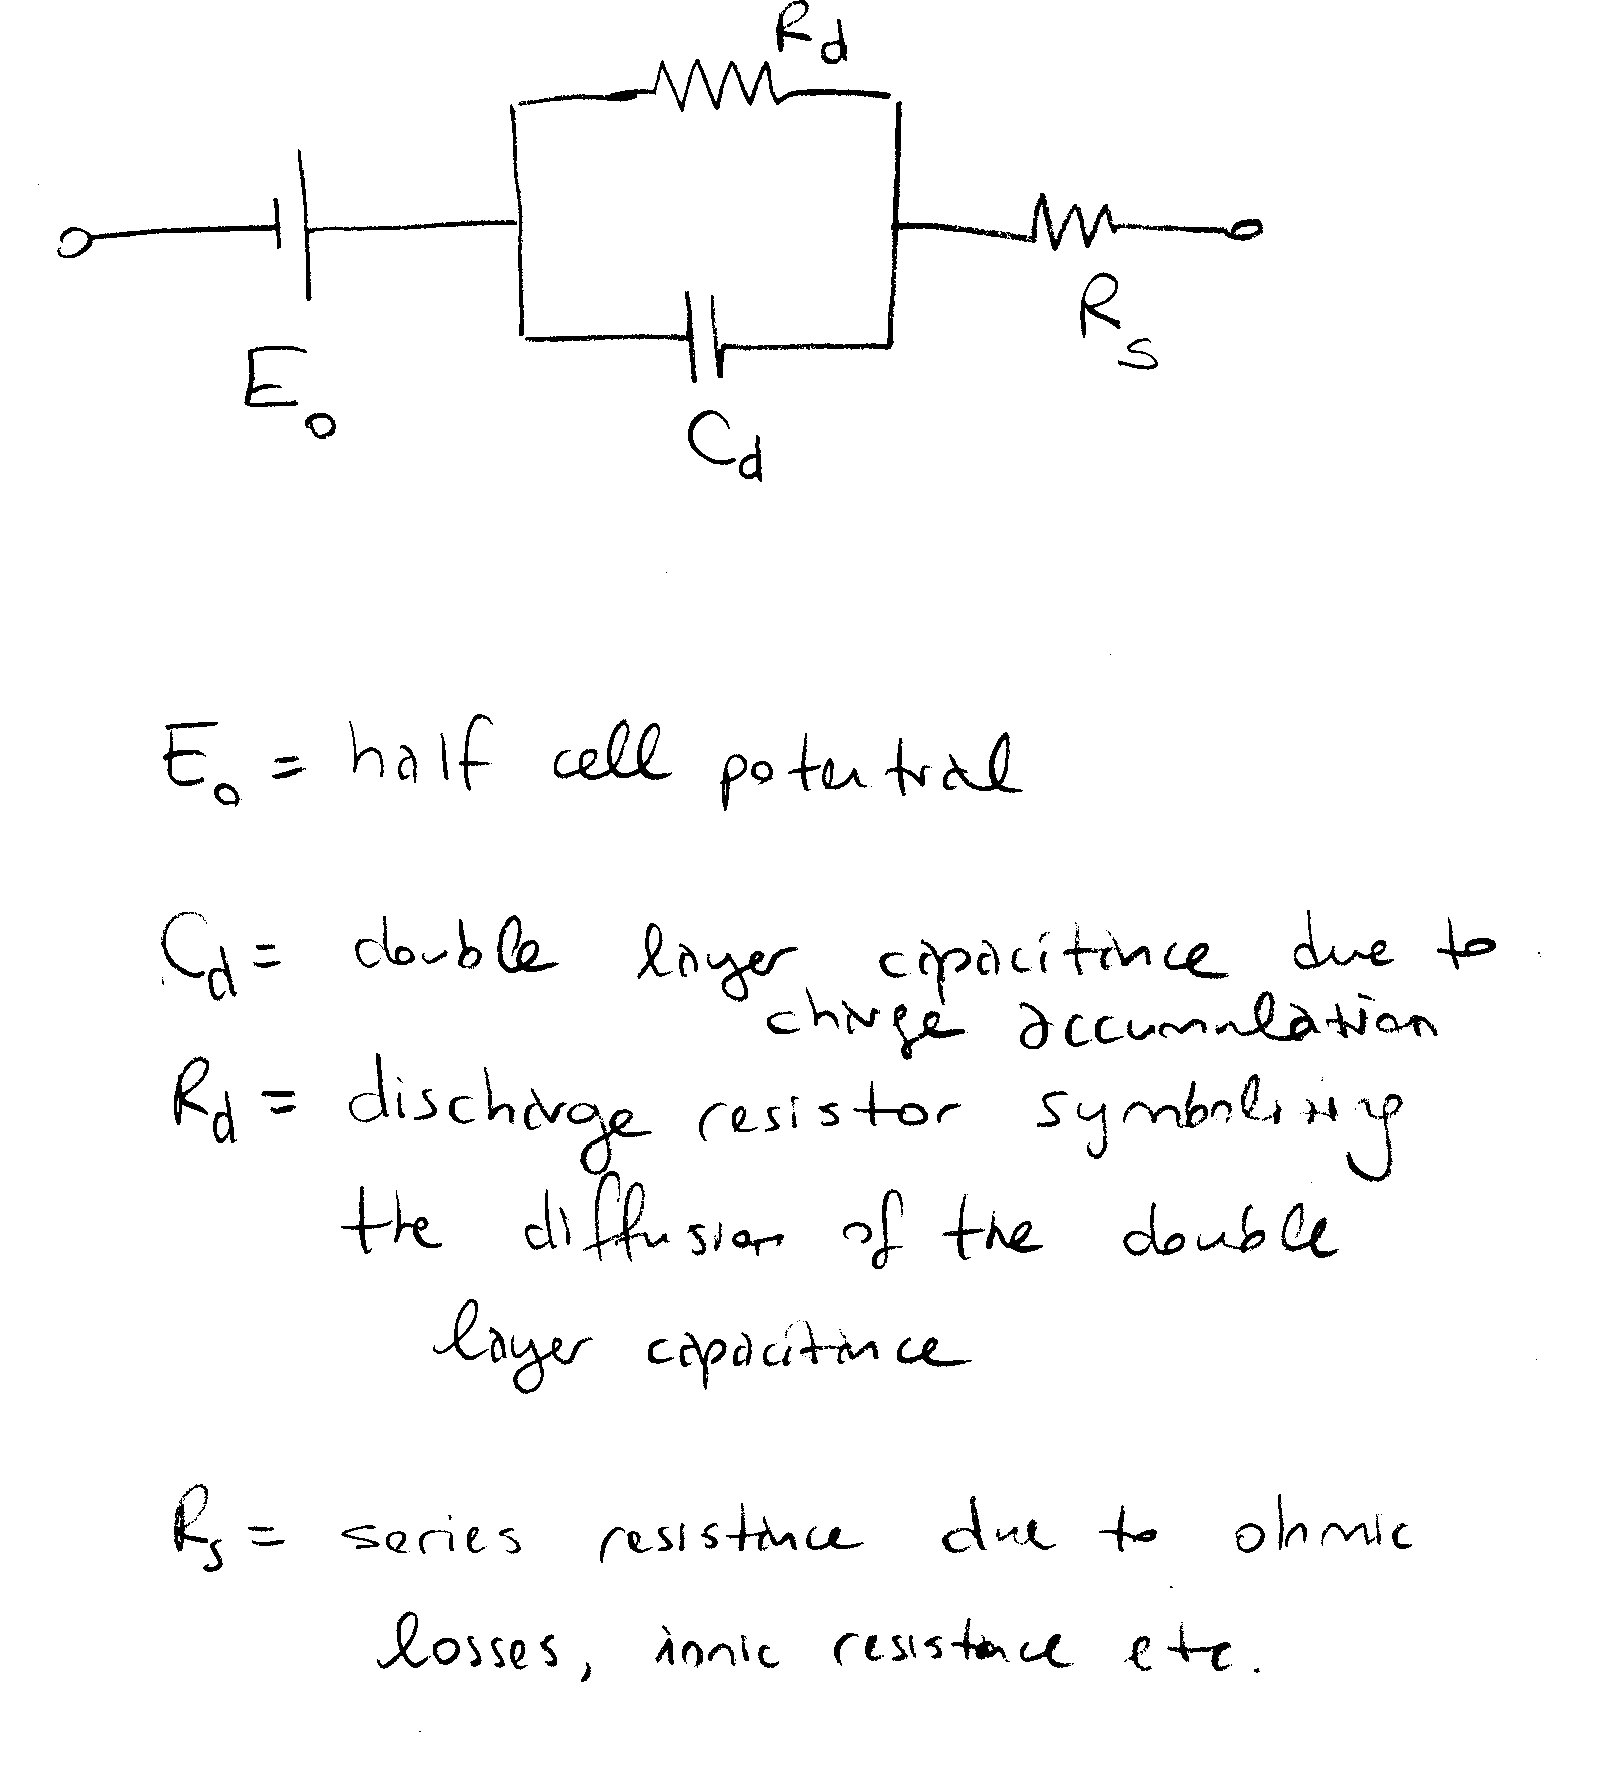 R_d
E_o
R_s
C_d
E_o = half cell potential
C_d = double layer capacitance due to
charge accumulation
R_d = discharge resistor symbolizing
the diffusion of the double
layer capacitance
R_s = series resistance due to ohmic
losses, ionic resistance etc.